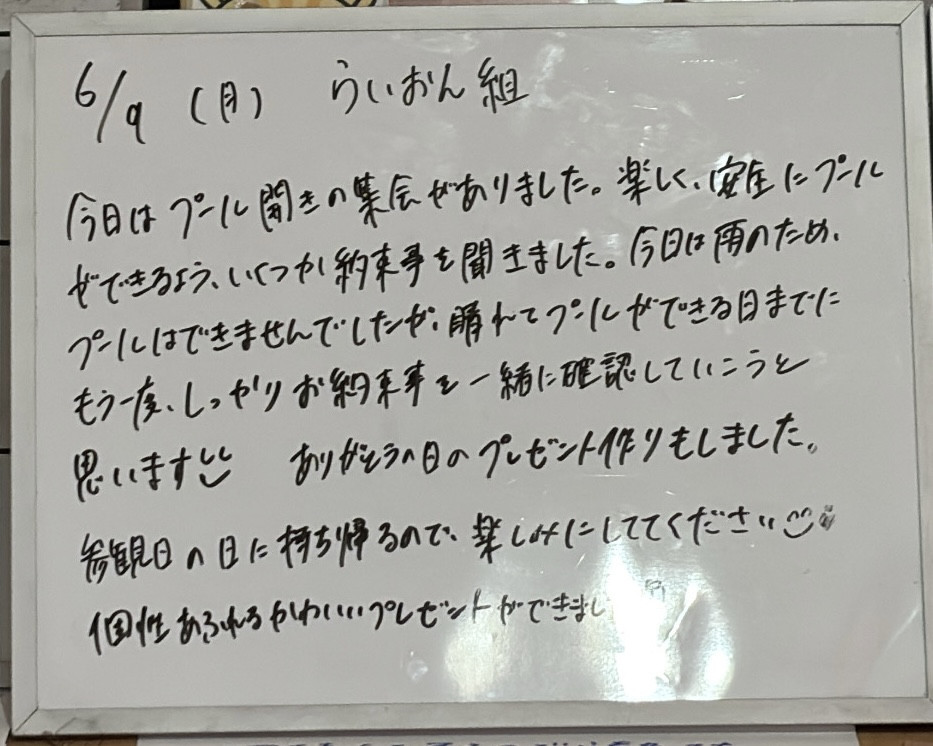 6/9 (月) らいおん組
今日はプール開きの集会がありました。楽しく、安全にプール
ができるよう、いくつか約束事を聞きました。今日は雨のため、
プールはできませんでしたが、晴れてプールができる日までに
もう一度、しっかりお約束事を一緒に確認していこうと
思います ありがとうの日のプレゼント作りもしました。
参観日の日に持ち帰るので、楽しみにしててください
個性あふれるかわいいプレゼントができまし